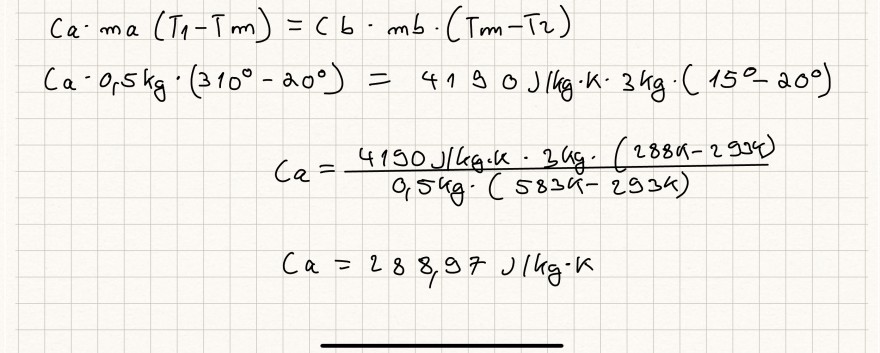 Ca · ma (T1 - Tm) = Cb · mb · (Tm - T2)
Ca · 0,5kg · (310° - 20°) = 4190 J/kg·K · 3kg · (15° - 20°)
Ca = 4190 J/kg·K · 3kg · (288K - 293K) / 0,5kg · (583K - 293K)
Ca = 288,97 J/kg·K